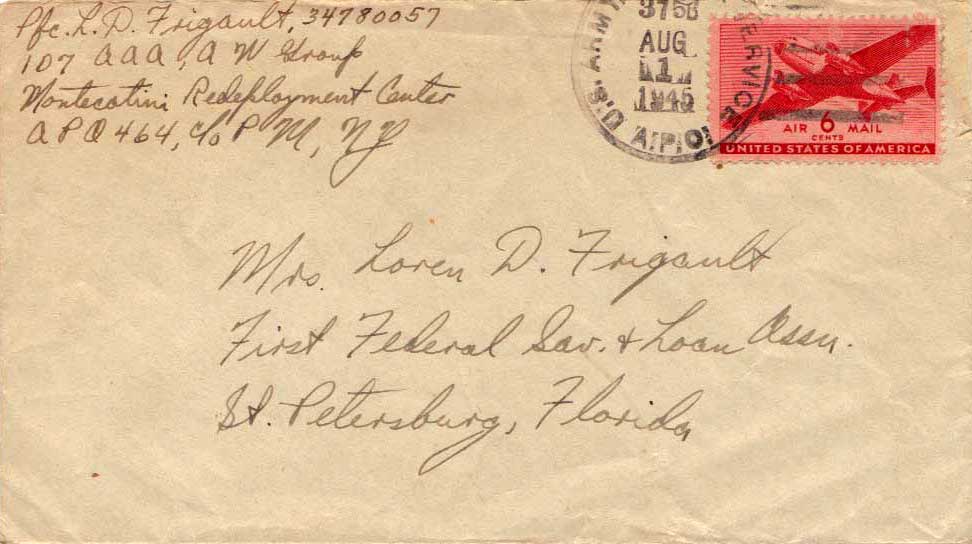 Pfc. L. D. Frigault, 34780057
107 AAA, AW Group
Montecatini Redeployment Center
APO 464, c/o PM, NY
U.S. ARMY SERVICE
AUG
1
1945
A.P.O.
AIR 6 MAIL
CENTS
UNITED STATES OF AMERICA
Mrs. Loren D. Frigault
First Federal Sav. & Loan Assn.
St. Petersburg, Florida